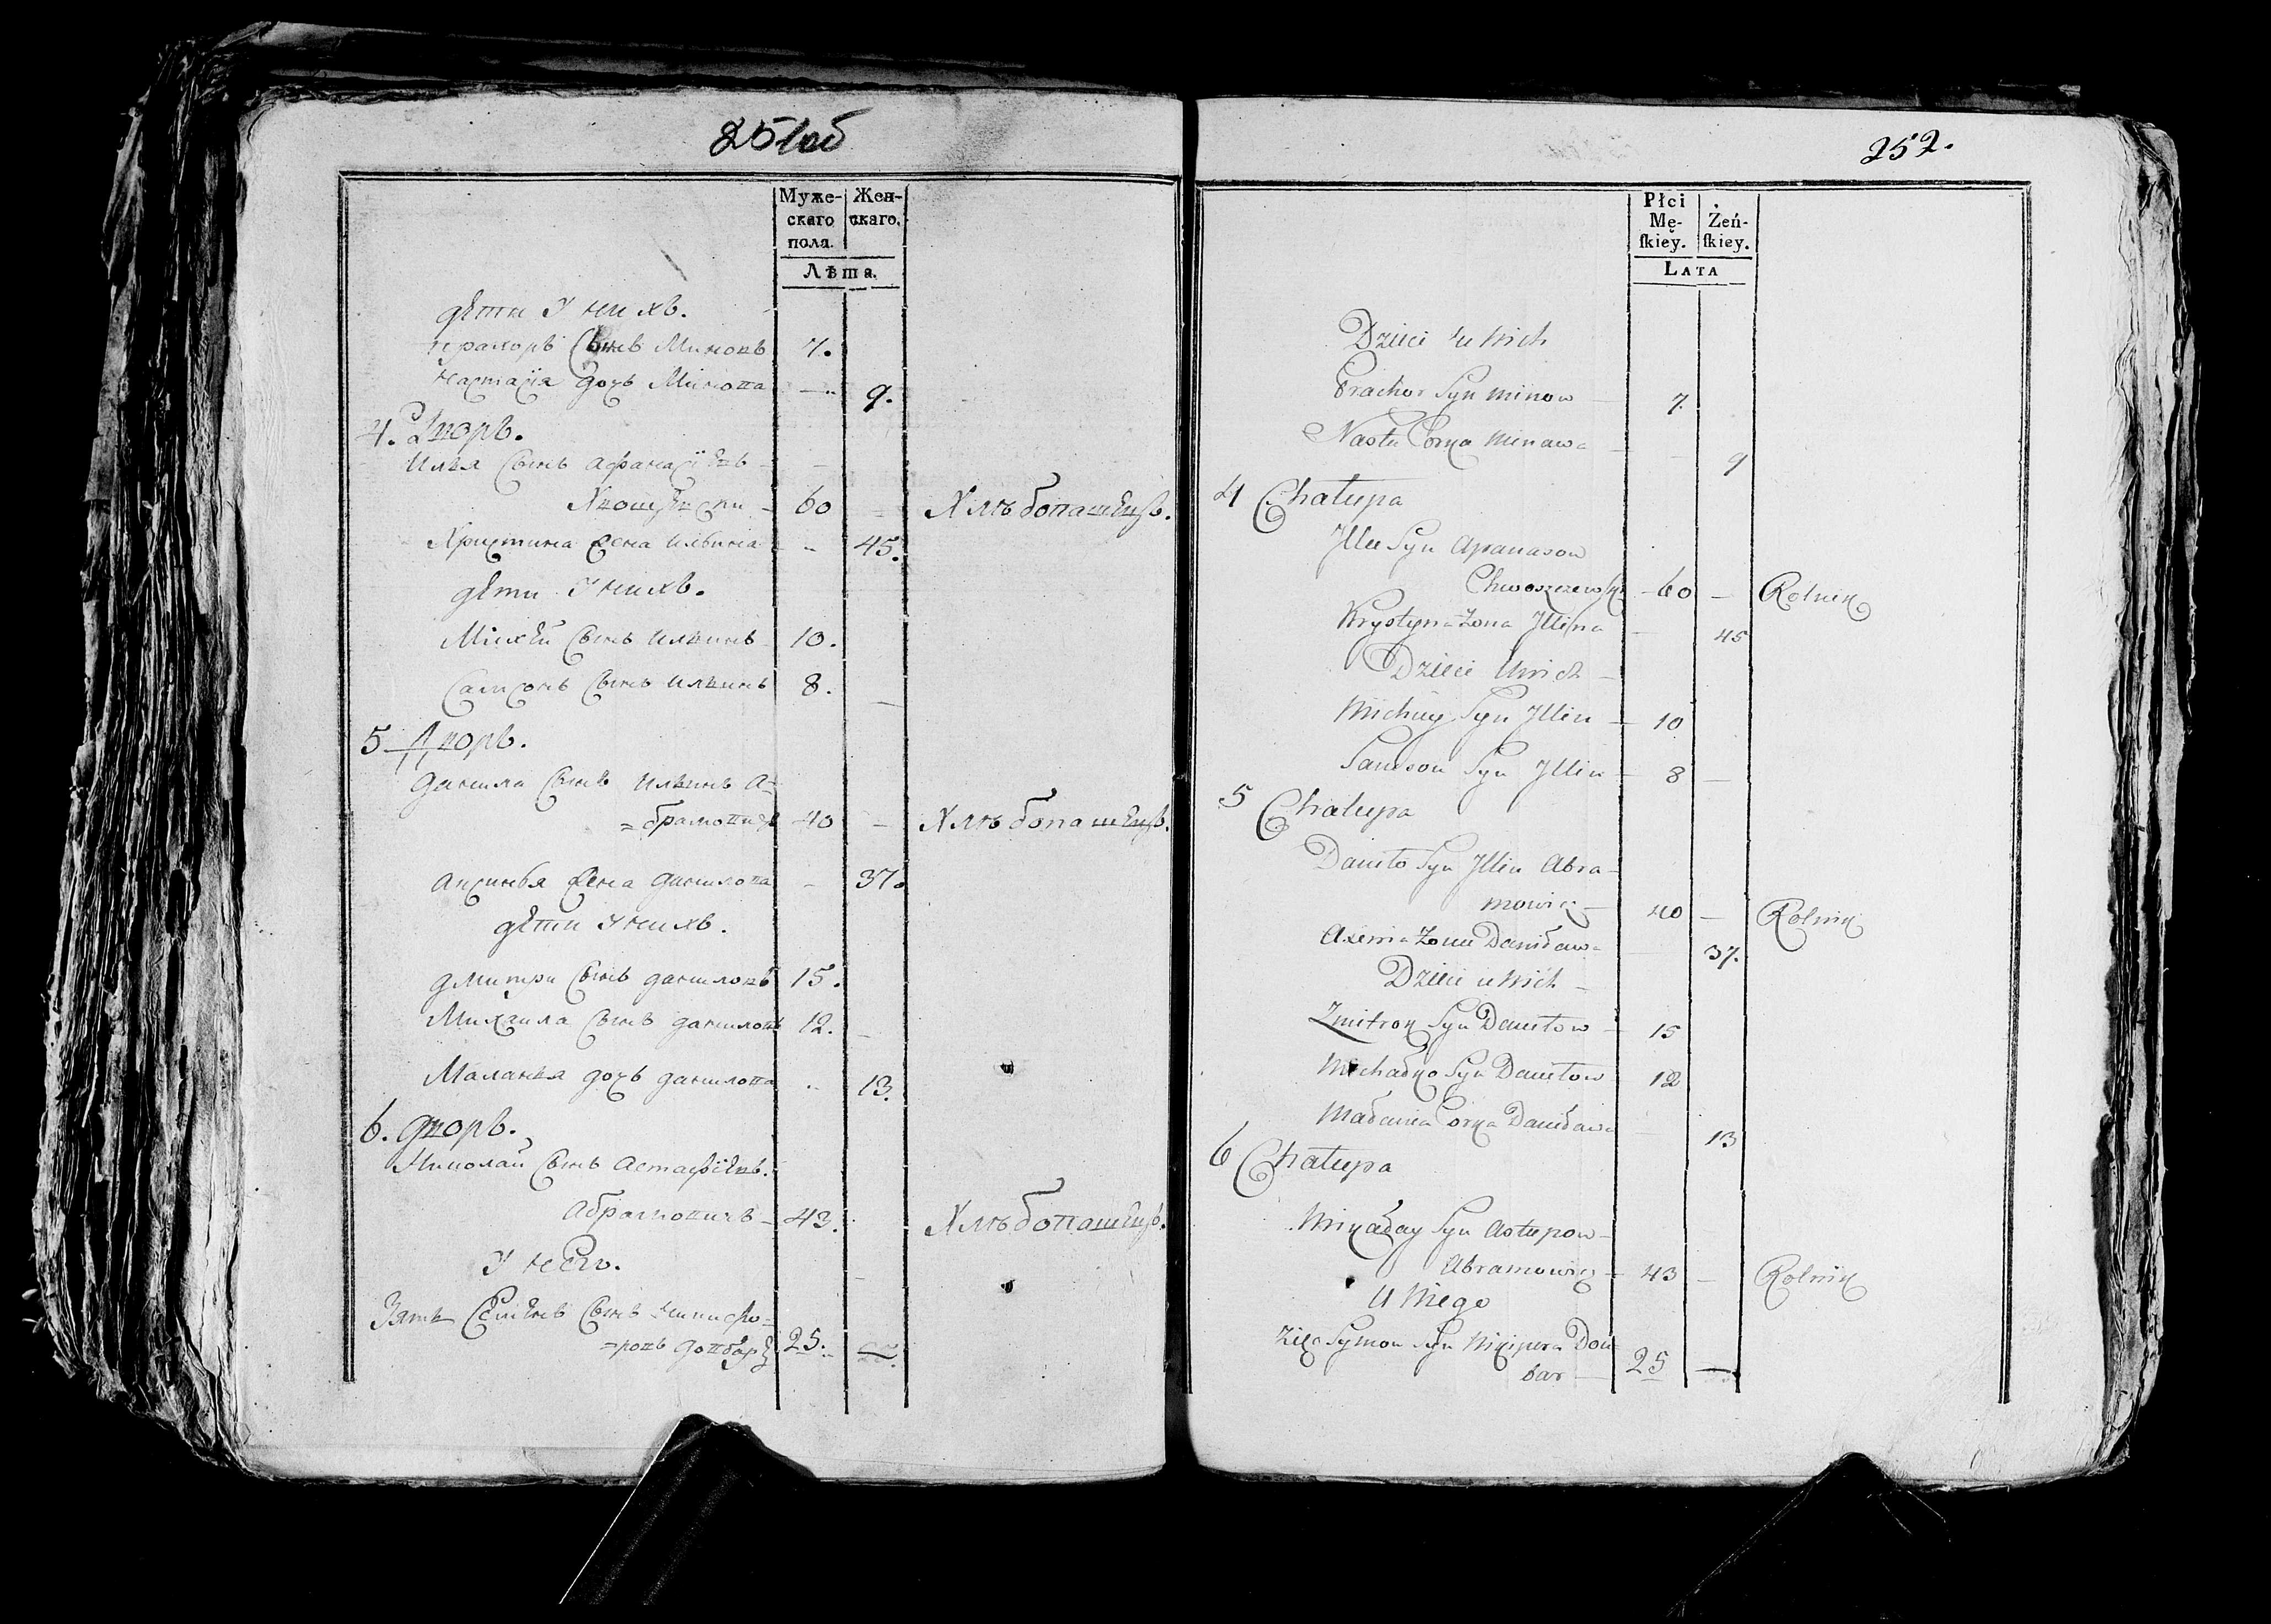 251об
Муже-
скаго
пола.
Жен-
скаго.
Лѣта.
дѣти У нихъ.
прахоръ Сынъ Миновъ 7.
Настасія дочь Минова — 9.
4. Дворъ.
Илья Сынъ Афанасіевъ
60 - Хлѣбопашецъ.
Христина жена Ильина - 45.
дѣти У нихъ.
Михѣй Сынъ Ильинъ 10.
Самсонъ Сынъ Ильинъ 8. —
5 Дворъ.
Данила Сынъ Ильинъ А-
=брамовичъ 40 - Хлѣбопашецъ.
Аксинья жена данилова - 37.
дѣти У нихъ.
дмитри Сынъ даниловъ 15.
Михаила Сынъ даниловъ 12. -
Маланья дочь данилова 13.
6. дворъ.
Николай Сынъ Астафіевъ.
Абрамовичъ - 43. Хлѣбопашецъ.
У него.
Зять Семенъ Сынъ Никифо-
=ровъ довбаръ 25.
252.
Płci
Mę-
skiey.
Żeń-
skiey.
Lata
Dzieci u Nich
Prachor Syn Minow — 7.
Nasta Corka Minawa — 9
4 Chałupa
Illa Syn Apanasow
Chwoszczewski - 60 — Rolnik
Krystyna Zona Illina 45
Dzieci U nich —
Michey Syn Illin — 10
Samson Syn Illin — 8 —
5 Chałupa
Daniło Syn Illin Abra-
mowicz — 40 — Rolnik
Axenia Zona Daniława 37.
Dzieci u Nich —
Zmitrok Syn Daniłow — 15
Michałko Syn Daniłow 12
Małania Corka Daniława 13
6 Chałupa
Mikałay Syn Astapow —
Abramowicz — 43 — Rolnik
U Niego
Zięć Symon Syn Nikipera Dou-
bar — 25 —